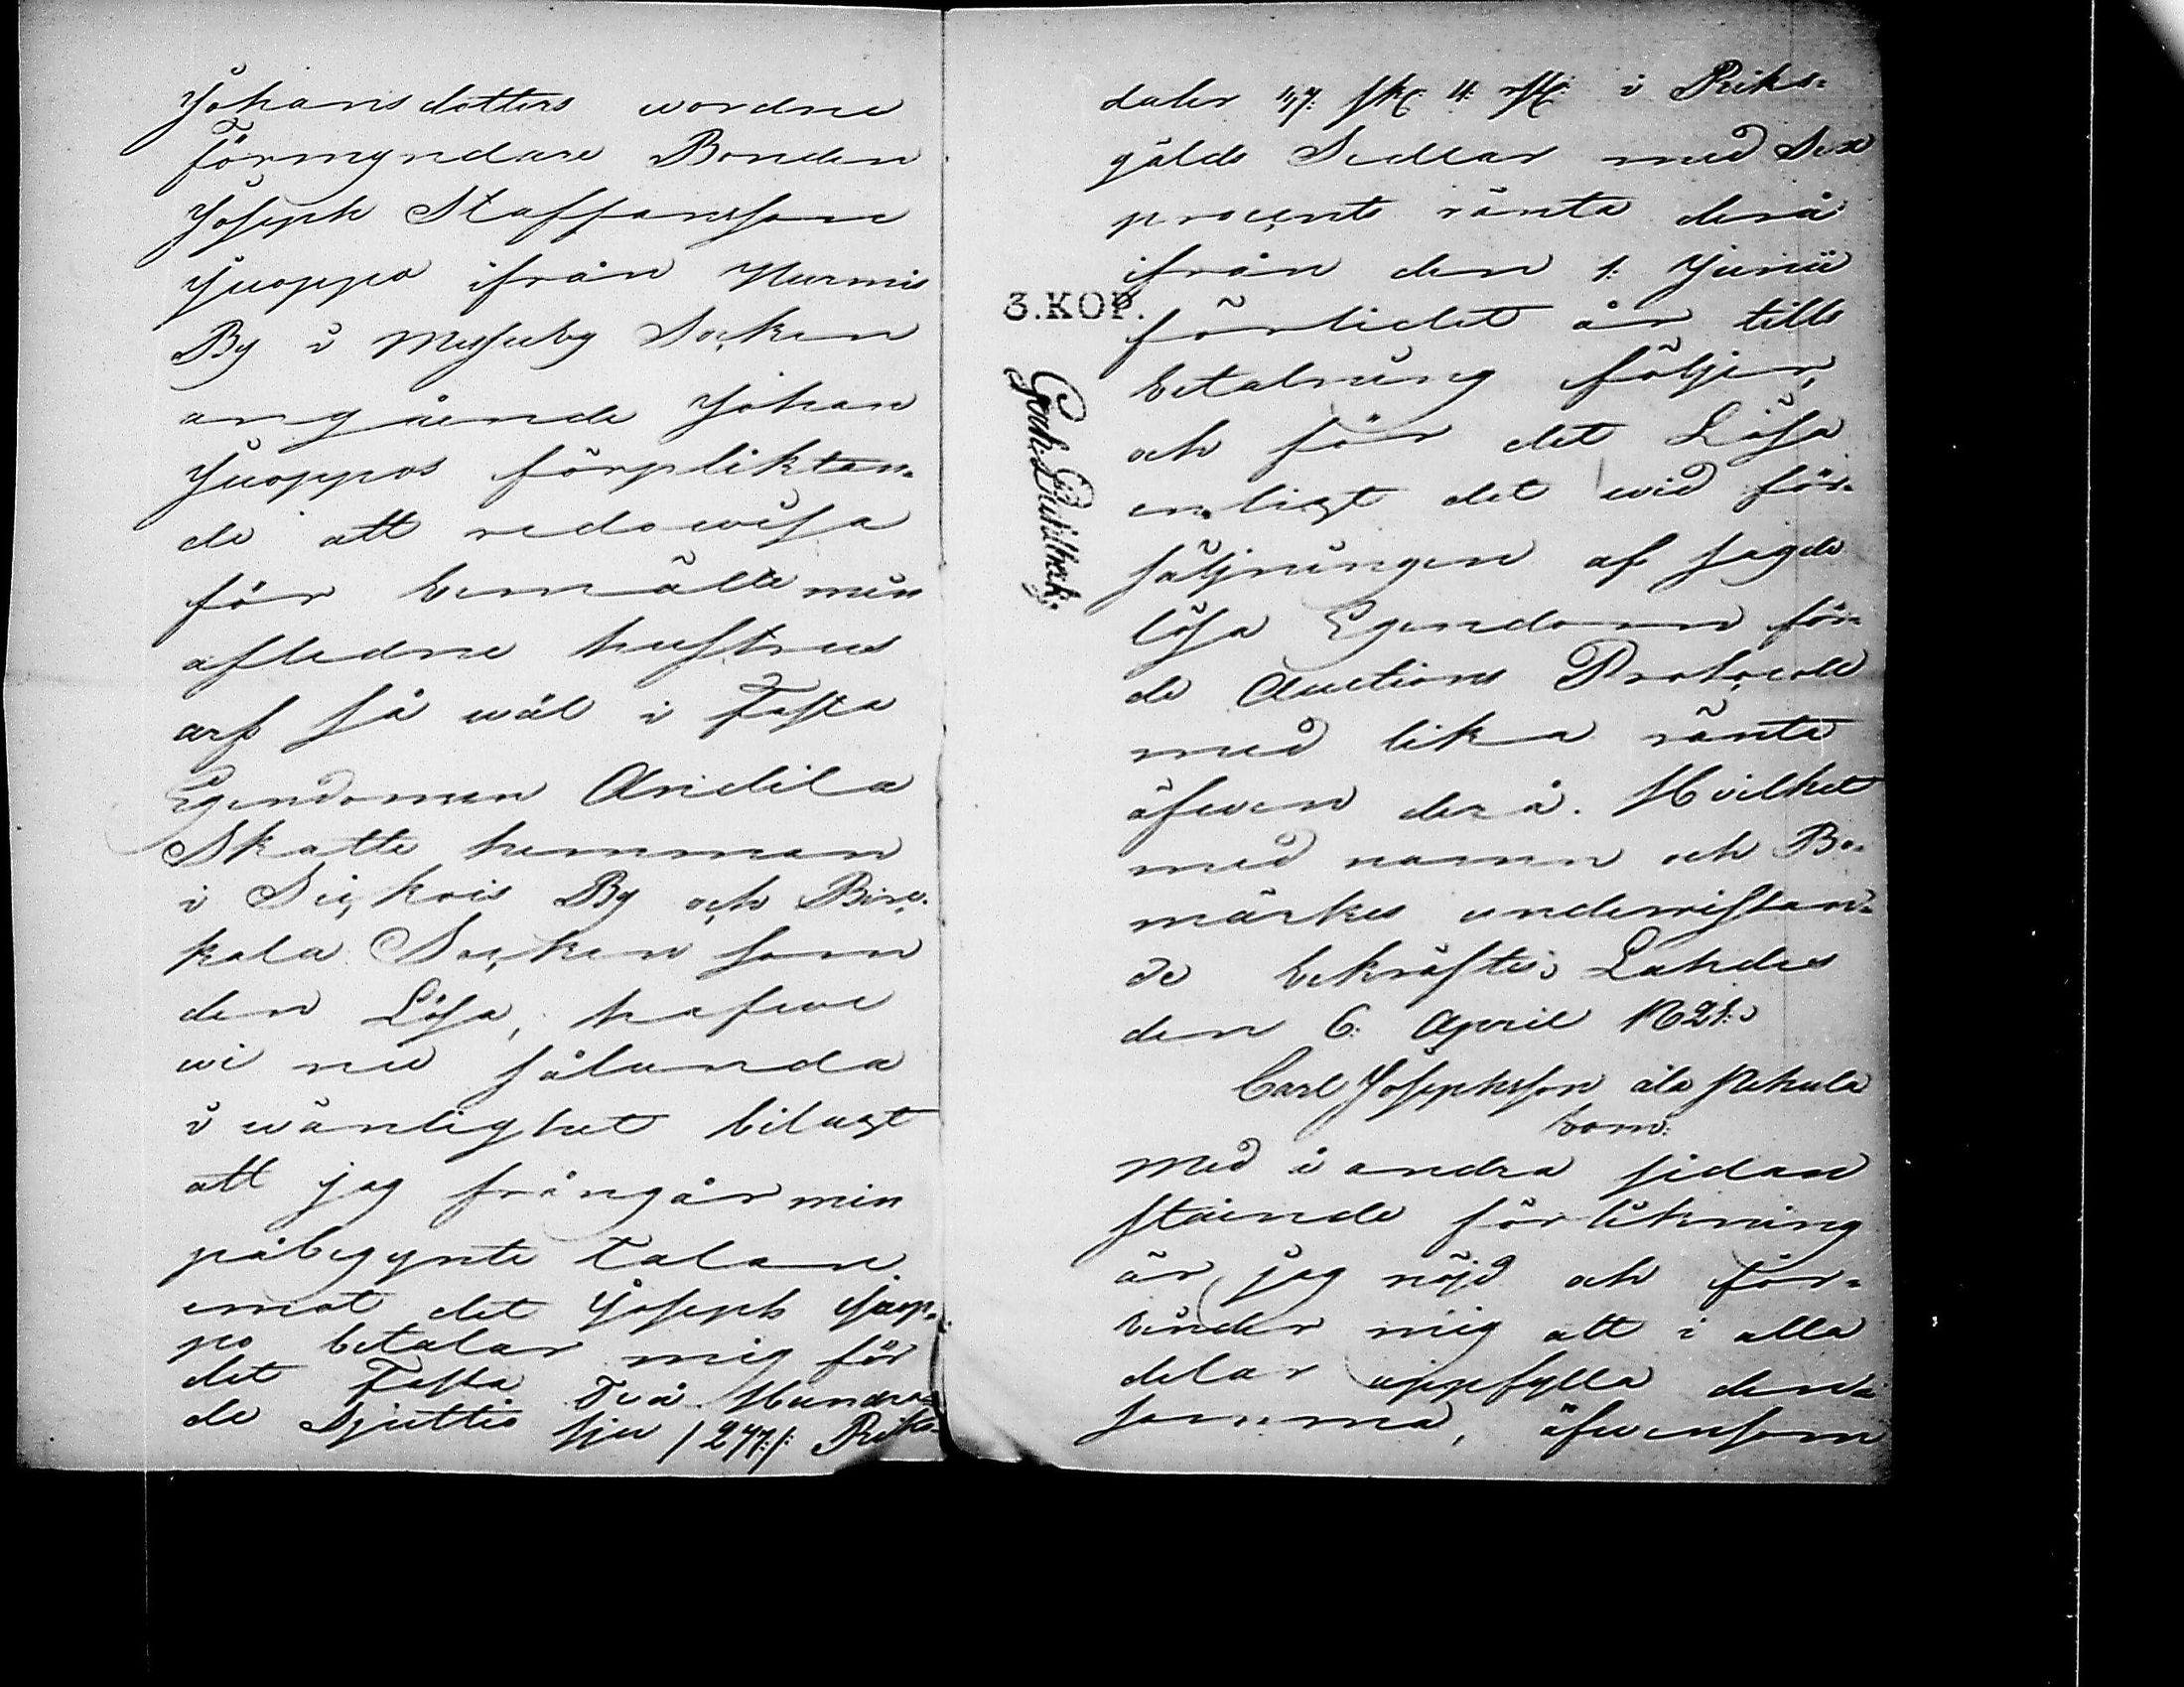 Johansdotters wordne
Förmyndare Bonden
Joseph Staffansson
Juoppo ifrån Nurmis
By i Messuby Socken
angående Johan
Juoppos förplikten¬
de att redowisa
för bemälte min
afledne hustrus
arf så wäl i Fasta
Egendomen Andila
Skatte hemman
i Sickois By och Birc¬
kala Socken som
den Lösa, hafwe
wi nu sålunda
i wänlighet bilagt
att jag frångår min
påbegynte talan
emot det Joseph Juop¬
po betalar mig för
det Fasta Två Hundra¬
de Sjuttio sju /:277:/ Riks¬
daler 47: sk: 4: rst: i Riks¬
gälds Sedlar med Sex
procents ränta derå
ifrån den 1: Junii
förlidet år tills
betalning följer,
och för det Lösa
enligt det wid för¬
säljningen af sagde
lösa Egendom för¬
de Auctions Protocoll
med lika ränta
äfwen derå. Hvilket
med namn och Bo¬
märkes underristan¬
de bekräftes, Lahdes
den 6: April 1821:
Carl Josephsson ala Pehula
bom:
Med å andra sidan
stående förlikning
är jag nöjd och för¬
binder mig att i alla
delar uppfylla den¬
samma, äfwensom
3.KOP.